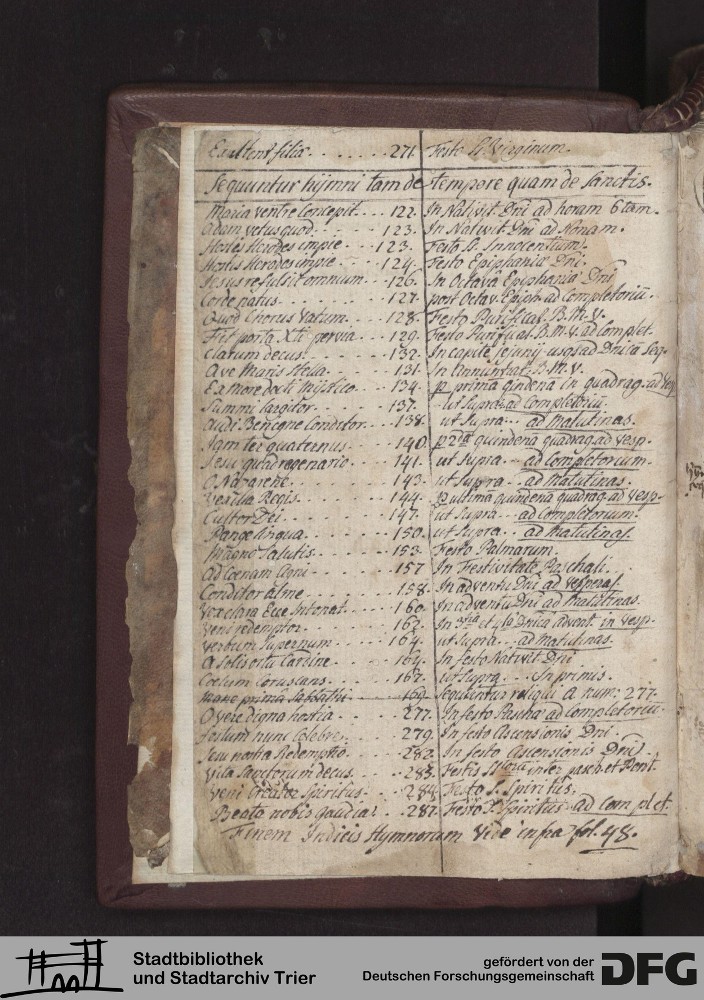 Exultent filiæ . . . . . . . 271. Festo SS. Virginum.
Sequuntur hijmni tam de tempore quam de Sanctis.
Maria ventre Concepit . . . 122. In Nativit. Dni ad horam 6tam.
Adam vetus quod . . . . . 123. In Nativit. Dni ad Nonam.
Hostes Herodes impie . . . 123. Festo SS. Innocentum.
Hostis Herodes impie . . . 124. Festo Epiphaniæ Dni.
Jesus refulsit omnium . . . 126. In Octavâ Epiphaniæ Dni
Corde natus . . . . . . . 127. post Octav. Epiph. ad Completoriū.
Quod Chorus Vatum . . . . 128. Festo Purificat. B. M. V.
Fit porta Xti pervia . . . 129. Festo Purificat. B. M. V. ad Complet.
Clarum decus . . . . . . 132. In capite jejunij usqs ad Dnica
Ave Maris Stella . . . . . 131. In Annuntiat. B. M. V.
Ex More docti Mijstico . . . 134. p prima qindena in quadrag. ad Vesp
Summi largitor . . . . . . 137. ut Supra ad Completoriū.
Audi Benigne Conditor . . . 138. ut Supra . . . ad Matutinas.
Jam ter quaternus . . . . . 140. p 2da quindena quadrag. ad Vesp.
Jesu quadragenario . . . . 141. ut Supra . . . ad Completorium.
O Nazarene . . . . . . . 143. ut Supra . . . ad Matutinas.
Vexilla Regis . . . . . . 144. p ultima quindena quadrag. ad Vesp.
Cultor Dei . . . . . . . 147. ut Supra . . . ad Completorium.
Pange lingua . . . . . . 150. ut Supra . . . ad Matutinas.
Magno Salutis . . . . . . 153. Festo Palmarum.
Ad Coenam Agni . . . . . 157 In Festivitate Paschali . .
Conditor alme . . . . . . 158. In adventu Dni ad Vesperas.
Vox clara Ecce Intonat . . . 160. In adventu Dni ad Matutinas.
Veni redemptor . . . . . 162. In 3tia et 4ta Dnica Advent. in Vesp.
Verbum Supernum . . . . 164. ut Supra . . . ad Matutinas.
A Solis ortu Cardine . . . . 164. In festo Nativit Dni
Coelum Coruscans . . . . 167. ut Supra . . . In primis.
Mane primâ Sabbathi 169. Sequuntur reliqui a num: 277.
O vere digna hostia . . . . 277. In festo Paschæ ad Completoriū.
Festum nunc Celebre . . . 279. In festo Ascensionis Dni.
Jesu nostra Redemptio . . . 282. In festo Ascensionis Dni.
Vita Sanctorum decus . . . 283. Festis inter pasch. et Pent.
Veni Creator Spiritus . . . 284. Festo S. Spiritus.
Beata nobis gaudia . . . . 287. Festo S. Spiritus ad Complet.
Finem Indicis Hymnorum Vide infra fol. 48.
Stadtbibliothek
und Stadtarchiv Trier
gefördert von der
Deutschen Forschungsgemeinschaft
DFG